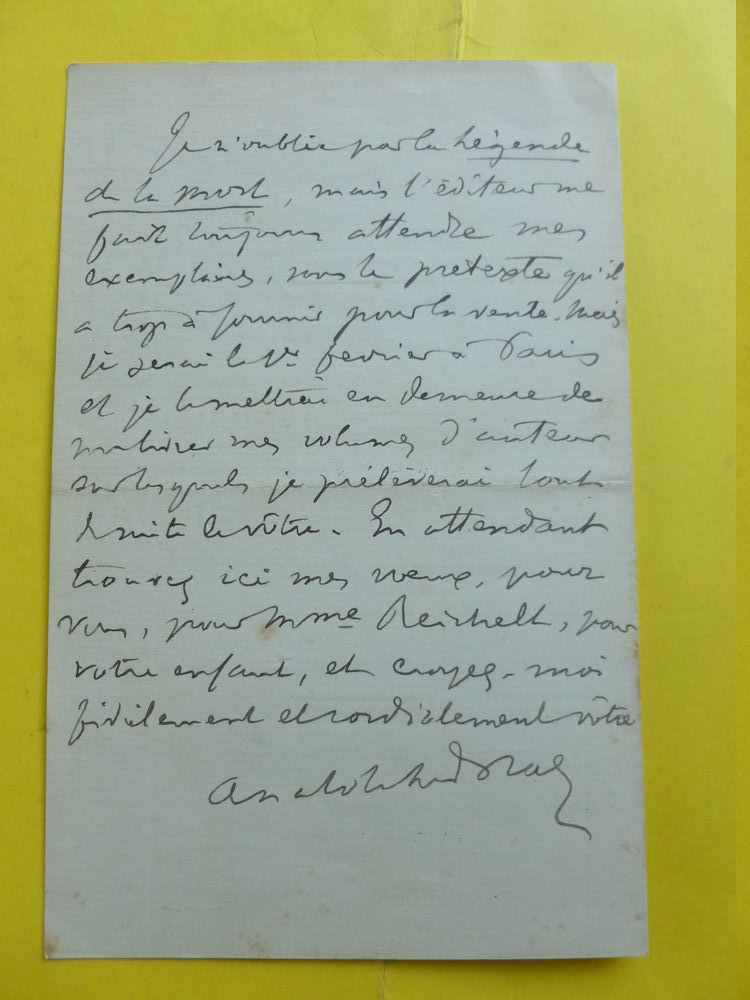 Je n'oublie pas la Légende
de la mort, mais l'éditeur me
fait toujours attendre mes
exemplaires, sous le prétexte qu'il
a trop à fournir pour la vente. Mais
je serai le 1er février à Paris
et je le mettrai en demeure de
me livrer mes volumes d'auteur
sur lesquels je prélèverai tout
de suite le vôtre. En attendant
trouvez ici mes vœux, pour
vous, pour Mme Reichelt, pour
votre enfant, et croyez-moi
fidèlement et cordialement vôtre
Anatole Le Braz